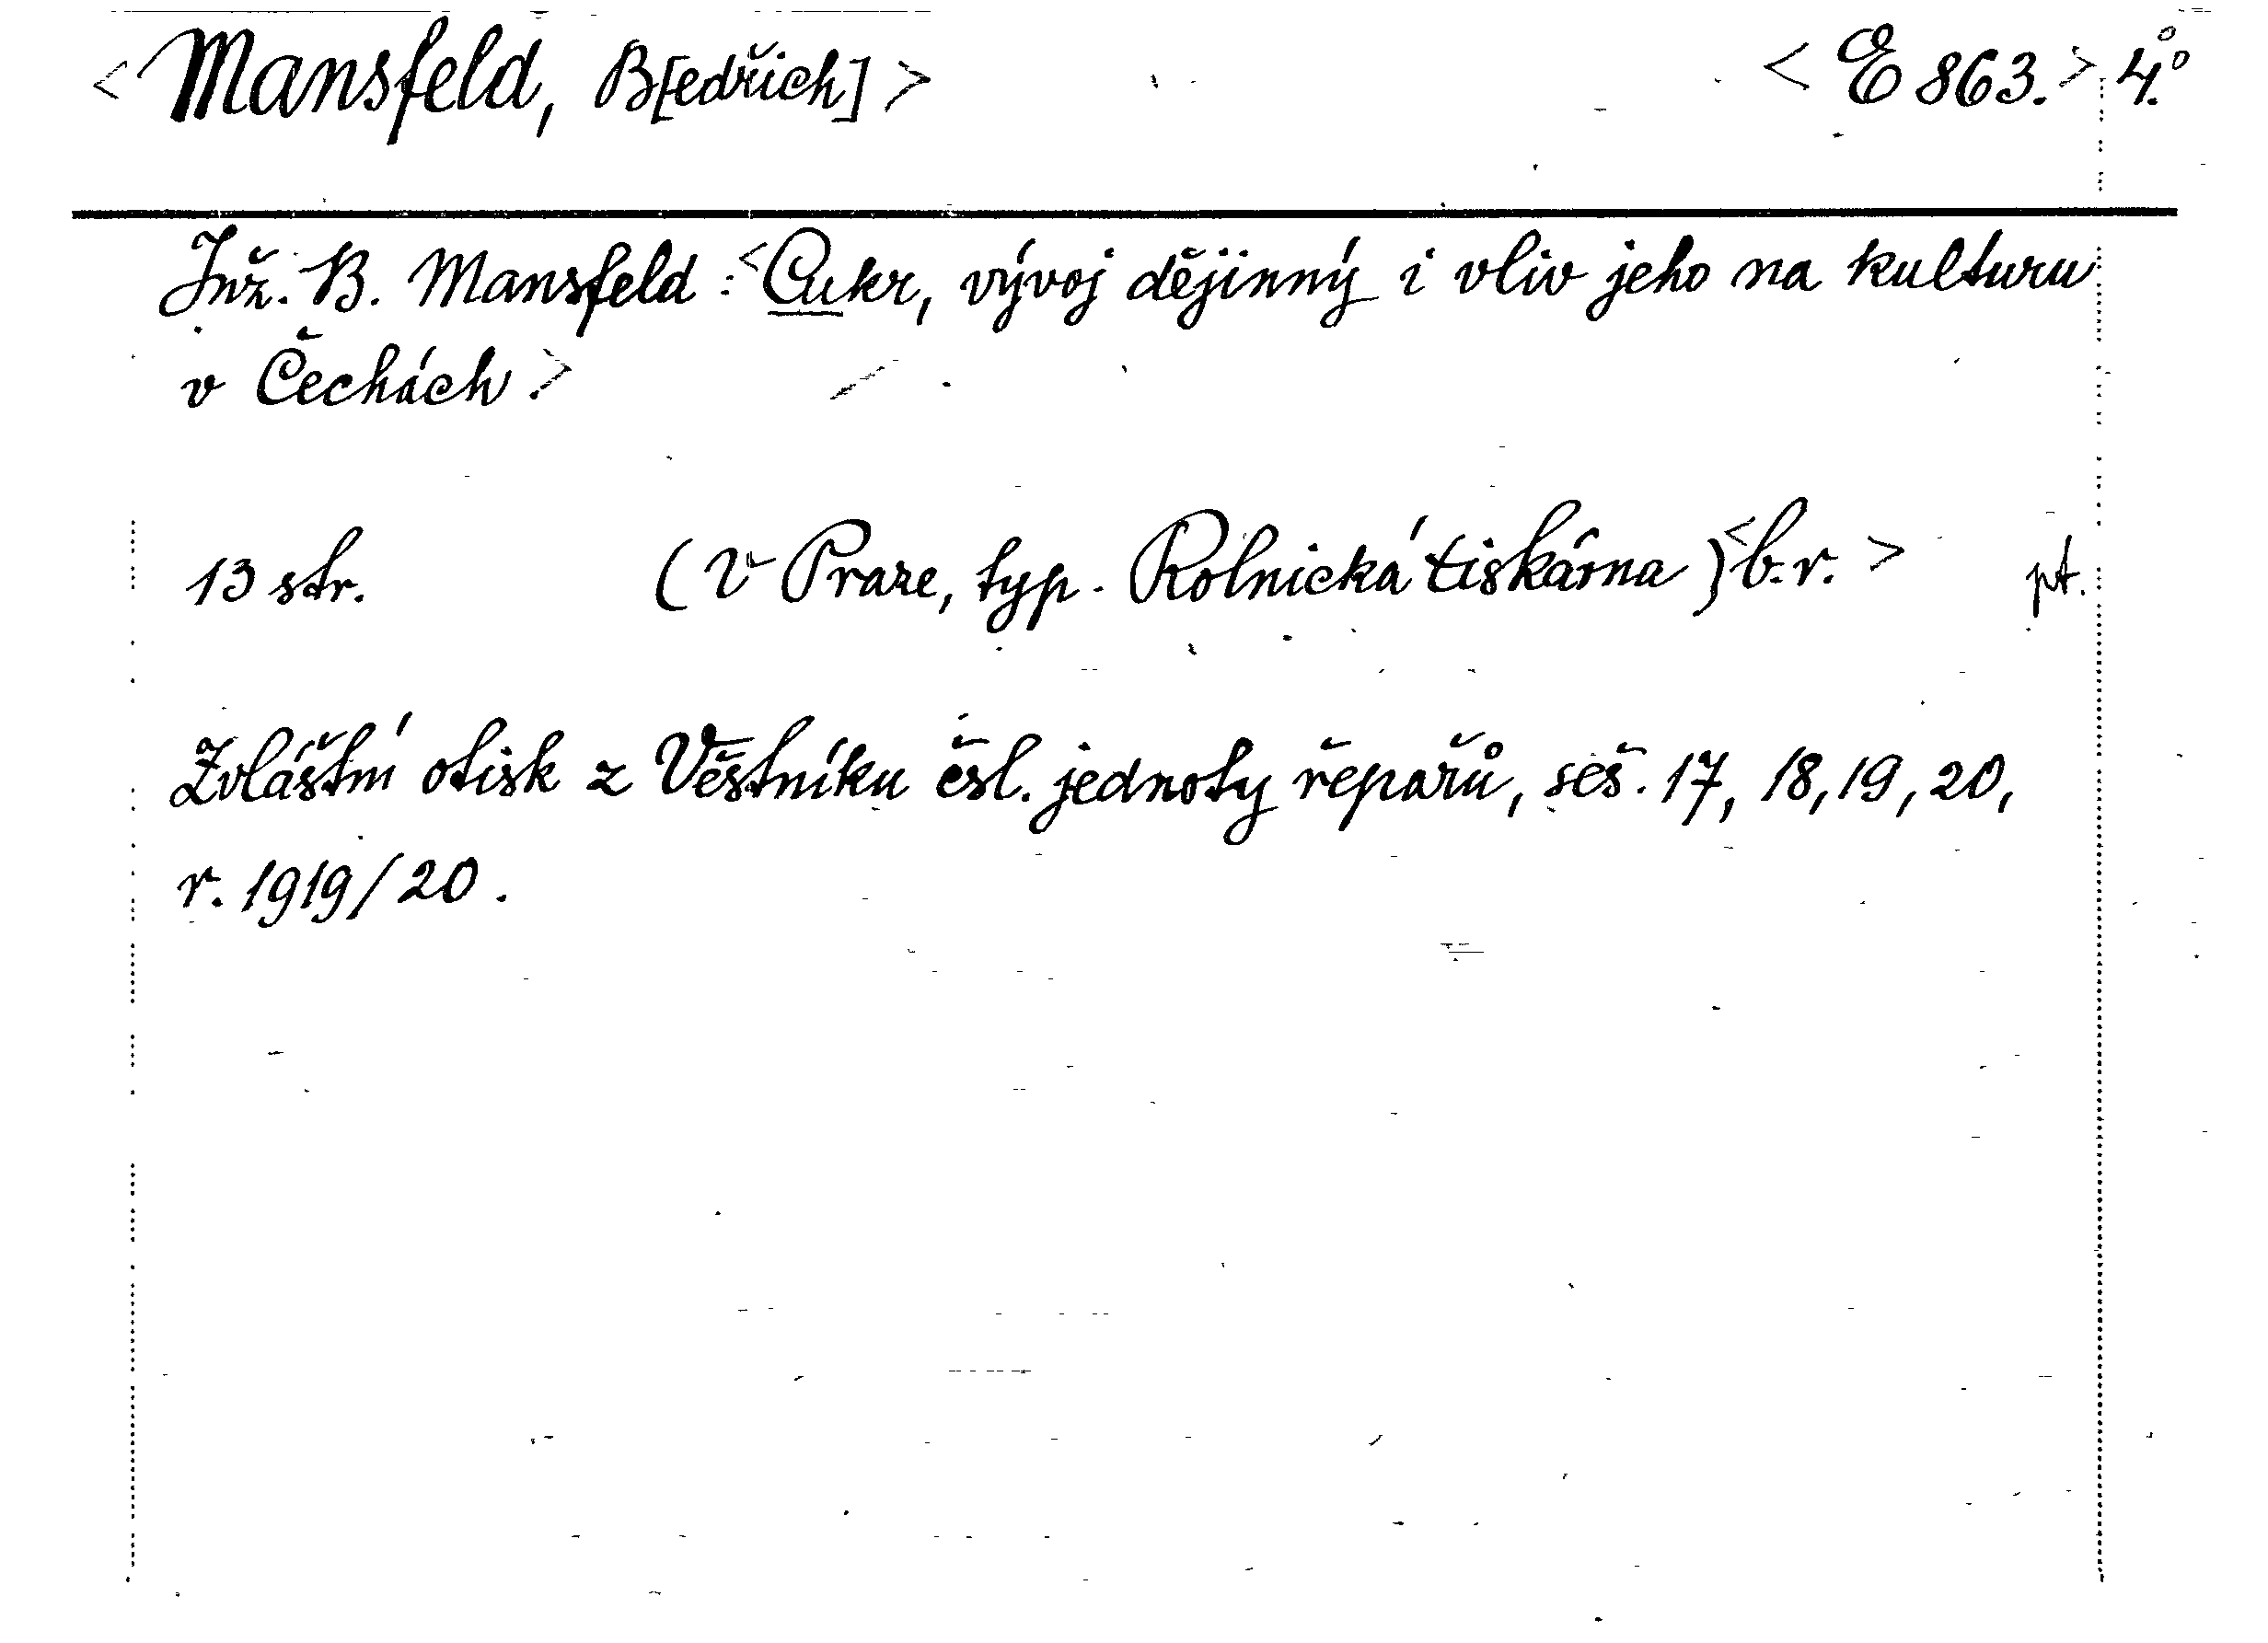 <Mansfeld, B[edřich]> <E 863.> 4.°
Inž. B. Mansfeld: <Cukr, vývoj dějinný i vliv jeho na kulturu
v Čechách.>
13 str. (V Praze, typ. Rolnická tiskárna) <b. r.> pt.
Zvláštní otisk z Věstníku čsl. jednoty řepařů, seš. 17, 18, 19, 20,
r. 1919/20.